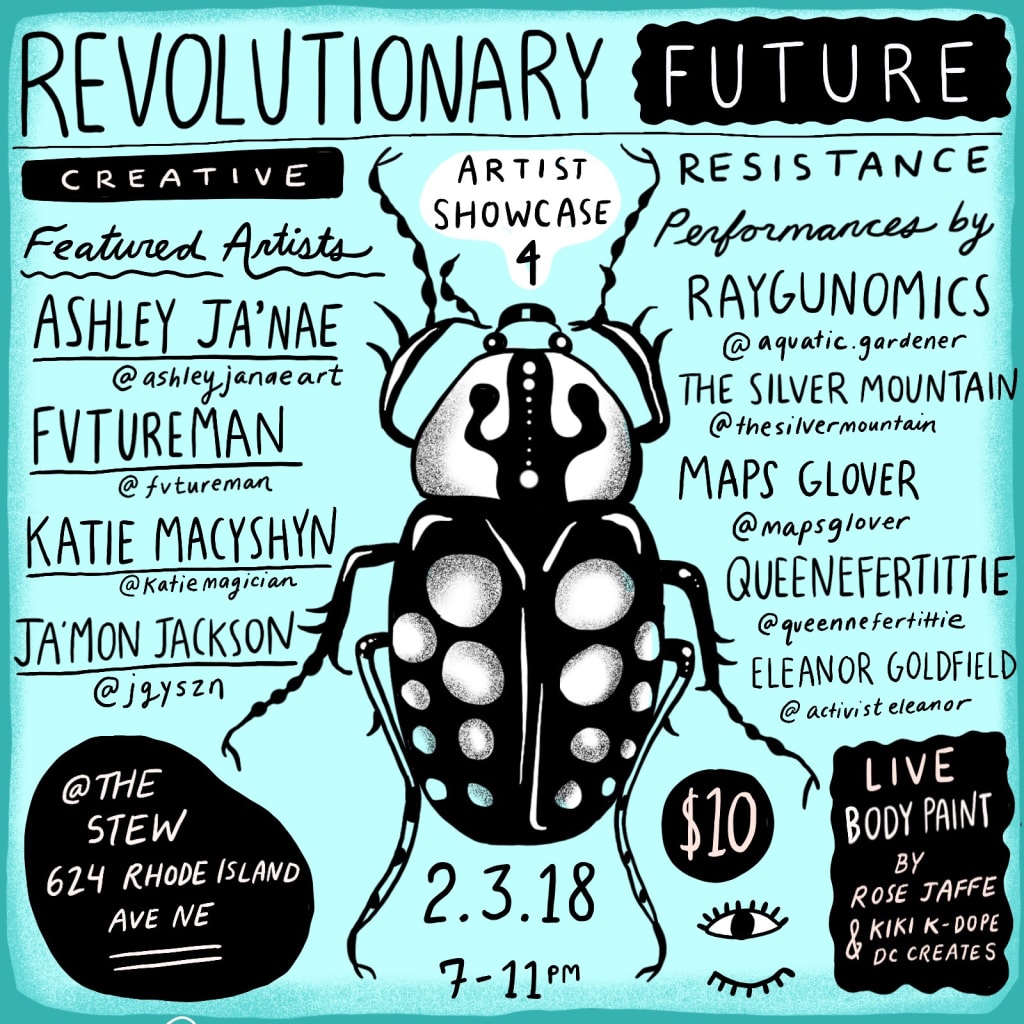 REVOLUTIONARY FUTURE
CREATIVE
ARTIST
SHOWCASE
4
RESISTANCE
Featured Artists
ASHLEY JA'NAE
@ashleyjanaeart
FVTUREMAN
@fvtureman
KATIE MACYSHYN
@katiemagician
JA'MON JACKSON
@jgyszn
Performances by
RAYGUNOMICS
@aquatic.gardener
THE SILVER MOUNTAIN
@thesilvermountain
MAPS GLOVER
@mapsglover
QUEENEFERTITTIE
@queennefertittie
ELEANOR GOLDFIELD
@activisteleanor
@THE
STEW
624 RHODE ISLAND
AVE NE
2.3.18
7-11PM
$10
LIVE
BODY PAINT
BY
ROSE JAFFE
& KIKI K-DOPE
DC CREATES